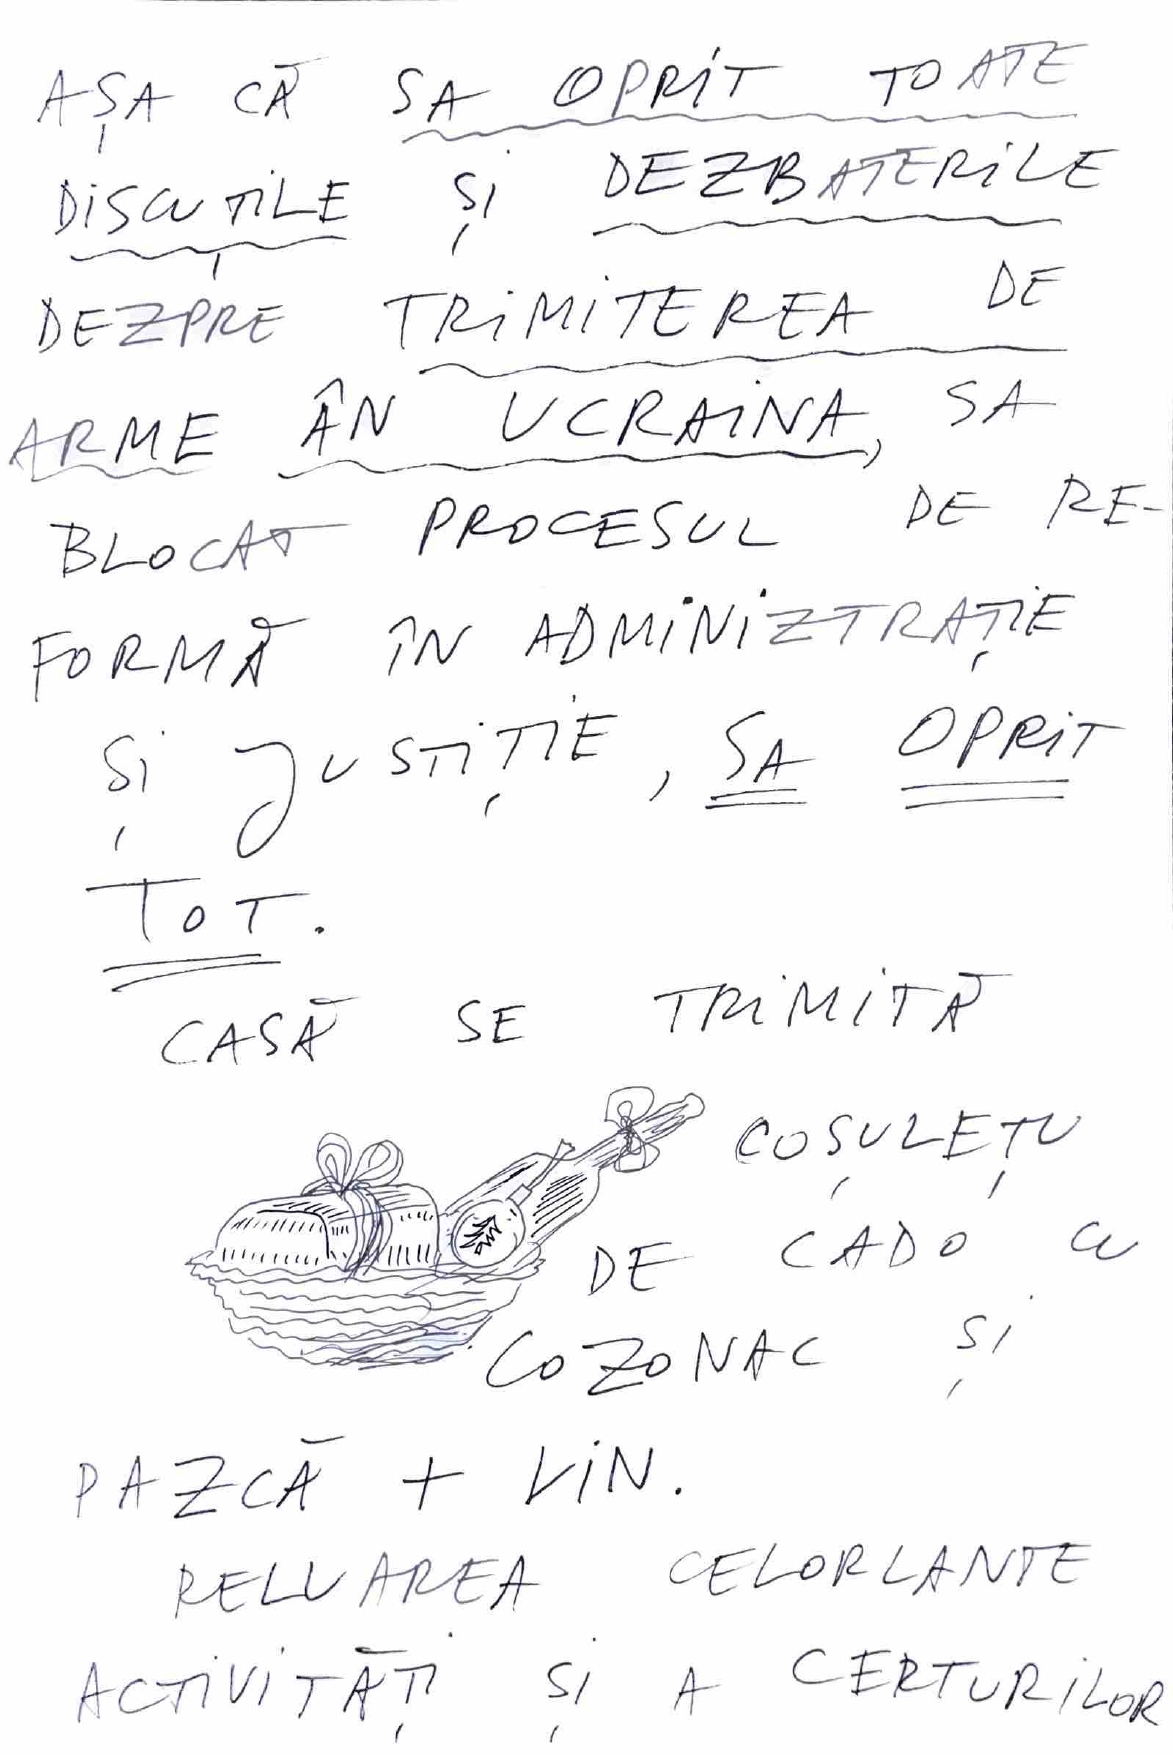 AȘA CĂ SA OPRIT TOATE
DISCUȚILE ȘI DEZBATERILE
DEZPRE TRIMITEREA DE
ARME ÂN UCRAINA, SA
BLOCAT PROCESUL DE RE-
FORMĂ ÎN ADMINIZTRAȚIE
ȘI JUSTIȚIE, SA OPRIT
TOT.
CASĂ SE TRIMITĂ
COȘULEȚU
DE CADO CU
COZONAC ȘI
PAZCĂ + VIN.
RELUAREA CELORLANTE
ACTIVITĂȚI ȘI A CERTURILOR